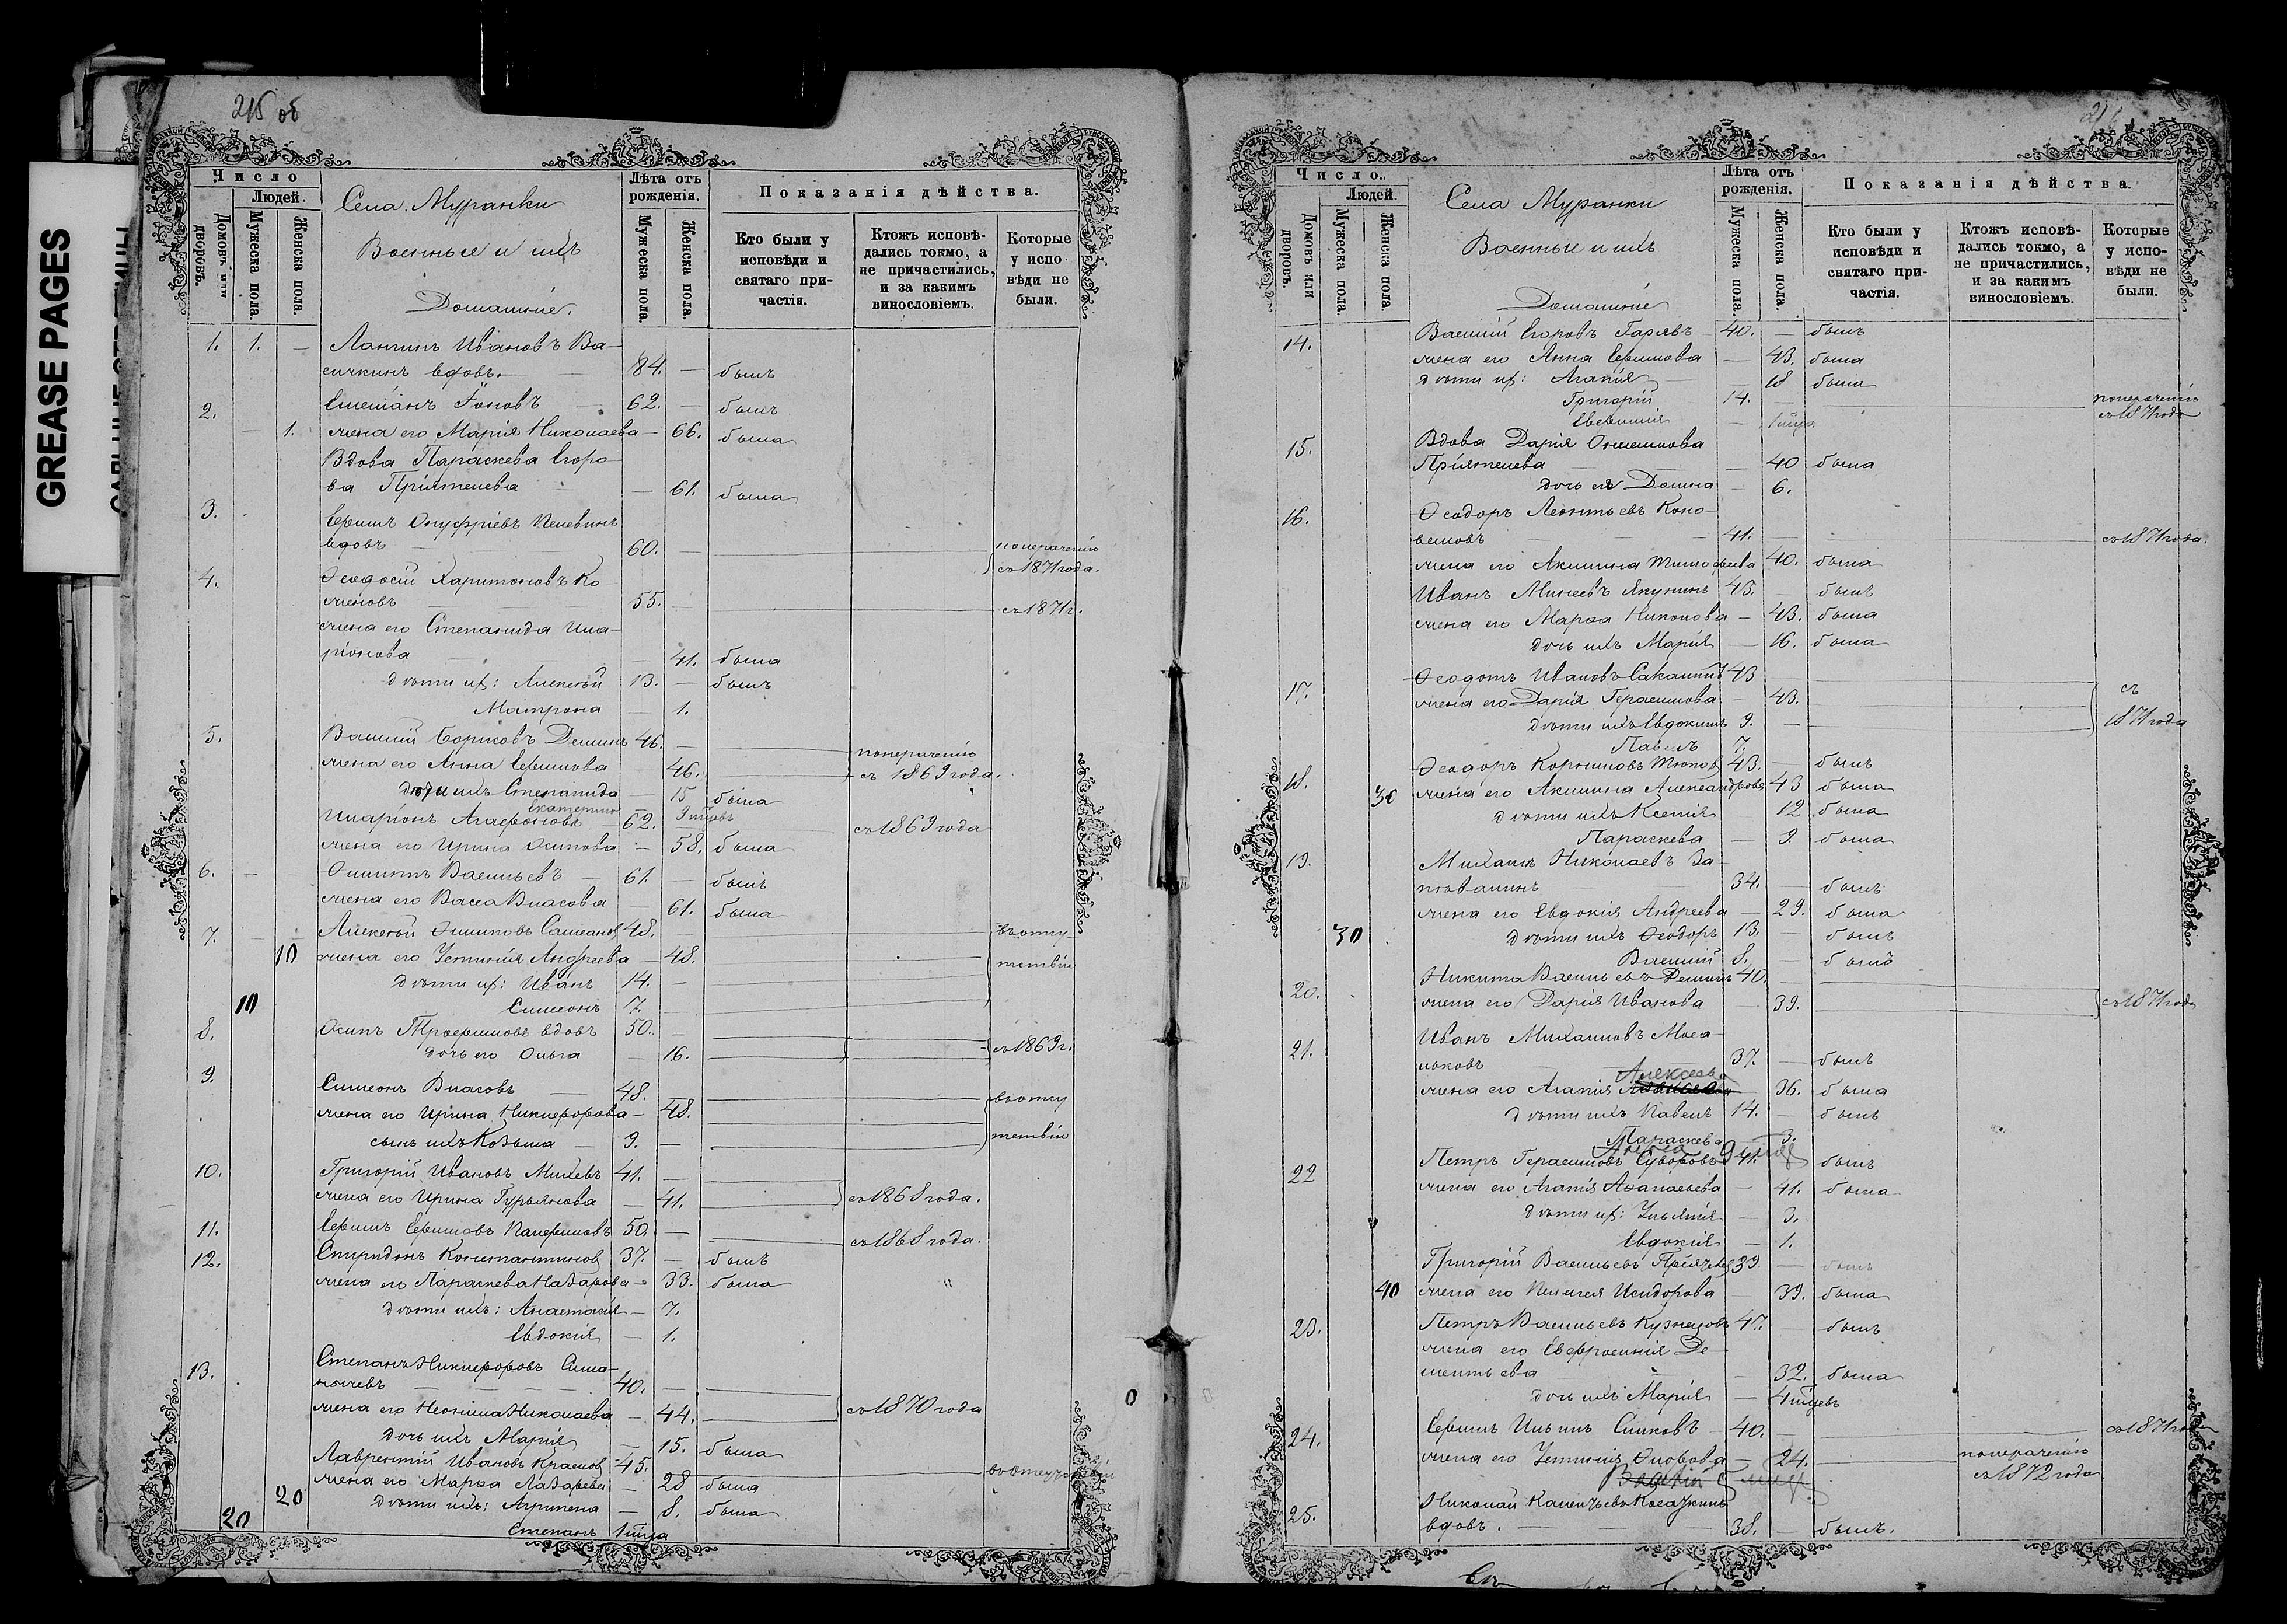 GREASE PAGES
215 об
Число
Людей.
Домовъ или дворовъ.
Мужеска пола.
Женска пола.
Села Муранки
Военные и ихъ
Домашніе.
Лѣта отъ рожденія.
Мужеска пола.
Женска пола.
Показанія дѣйства.
Кто были у исповѣди и святаго причастія.
Ктожъ исповѣдались токмо, а не причастились, и за какимъ винословіемъ.
Которые у исповѣди не были.
1. 1. — Лонгинъ Ивановъ Ва-
сичкинъ вдовъ. — 84. — былъ
2. 62. — былъ
1. жена его Марія Николаева — 66. была
Вдова Параскева Егоро-
ва Пріятелева — 61. была
3. Ефимъ Онуфріевъ Пелевинъ
вдовъ 60. — понераченію
съ 1871 года.
4. Ѳеодосій Харитоновъ Ко-
55. — съ 1871 г.
жена его Степанида Ила-
ріонова — 41. была
дѣти их: Алексѣй 13. — былъ
Матрона — 1.
5. Василій Борисовъ Деминъ 46. — понераченію
жена его Анна Ефимова — 46. съ 1869 года.
ихъ Степанида — 15 была
Екатерина 9 мцовъ
Иларіонъ Агафоновъ 62. съ 1869 года
жена его Ирина Осипова — 58. была
6. — Филиппъ Васильевъ — 61. — былъ
жена его Васса Власова 61. была
7. Алексѣй Филиповъ 48. — въ отлу-
10 жена его Устинія Андреева — 48. чніи
дѣти их: Иванъ 14. —
10 Симеонъ 7.
8. Осипъ Трофимовъ вдовъ 50. —
дочь его Ольга — 16. съ 1869 г.
9. Симеонъ Власовъ — 48. въ отлу
жена его Ирина Никифорова — 48.
сынъ ихъ Козьма — 9. —
10. Григорій Ивановъ Михѣевъ 41. —
жена его Ирина Гурьянова — 41. съ 1868 года.
11. Ефимъ Ефимовъ Панфиловъ 50. — съ 1868 года.
12. Спиридонъ Константиновъ 37. — былъ
жена его Параскева Назарова — 33. была
дѣти ихъ: Анастасія — 7.
Евдокія — 1.
13. Степанъ Никифоровъ Сима-
40. —
жена его Неонила Николаева — 44. съ 1870 года
дочь ихъ Марія — 15. была
Лаврентій Ивановъ Красновъ 45.
жена его Марѳа Лазарева — 28 была
20 дѣти ихъ: Агрипена — 8. была
20 Степанъ 1 мца
216
Число.
Людей.
Домовъ или дворовъ.
Мужеска пола.
Женска пола.
Села Муранки
Военные и ихъ
Домашніе
Лѣта отъ рожденія.
Мужеска пола.
Женска пола.
Показанія дѣйства.
Кто были у исповѣди и святаго причастія.
Ктожъ исповѣдались токмо, а не причастились, и за какимъ винословіемъ.
Которые у исповѣди не были.
14. Василій Егоровъ 40. — былъ
жена его Анна Ефимова — 43. была
дѣти их: Агапія — 18 была
Григорій 14. — понераченію
съ 1871 года
15. Вдова Дарія
Пріятелева — 40 была
дочь ея Домна — 6.
16. Ѳеодоръ Леонтьевъ Коно-
валовъ 41. — съ 1871 года.
жена его Акилина Тимоѳеева 40. была
Иванъ Минеевъ Якунинъ 43. — былъ
жена его Марѳа Никонова — 43. была
дочь ихъ Марія — 16. была
17. Ѳеодотъ Ивановъ 43 съ
жена его Дарія Герасимова 43.
дѣти ихъ Евдокимъ 9. — 1871 года
Павелъ 7.
18. Ѳеодоръ Корниловъ 43. — былъ
30 жена его Акилина Александрова 43 была
дѣти ихъ Ксенія 12 была
Параскева — 9. была
19. Михаилъ Николаевъ За-
34. — былъ
жена его Евдокія Андреева — 29. была
30 дѣти ихъ Ѳеодоръ 13. — былъ
Василій 8. — былъ
20. Никита Васильевъ Деминъ 40. —
жена его Дарія Иванова — 39. съ 1871 года
21. Иванъ Михаиловъ Моса-
льковъ 37. — былъ
Алексеева
жена его Агапія 36. была
дѣти ихъ Павелъ 14. — былъ
Параскева 3.
22 Петръ Герасимовъ Суворовъ 41. былъ
жена его Агапія Аѳанасьева — 41. была
дѣти их: Ульянія — 3.
Евдокія — 1.
Григорій Васильевъ 39. — былъ
40 жена его Пелагея Исидорова 39. была
23. Петръ Васильевъ Кузнецовъ 47. — былъ
жена его Евфросинія Де-
ментьева — 32. была
дочь ихъ Марія — 4 мцевъ
24. Ефимъ Ильинъ Симковъ 40. — съ 1871 го
жена его Устинія — 24. понераченію
съ 1872 года
25. Николай
вдовъ. — 38. — былъ.